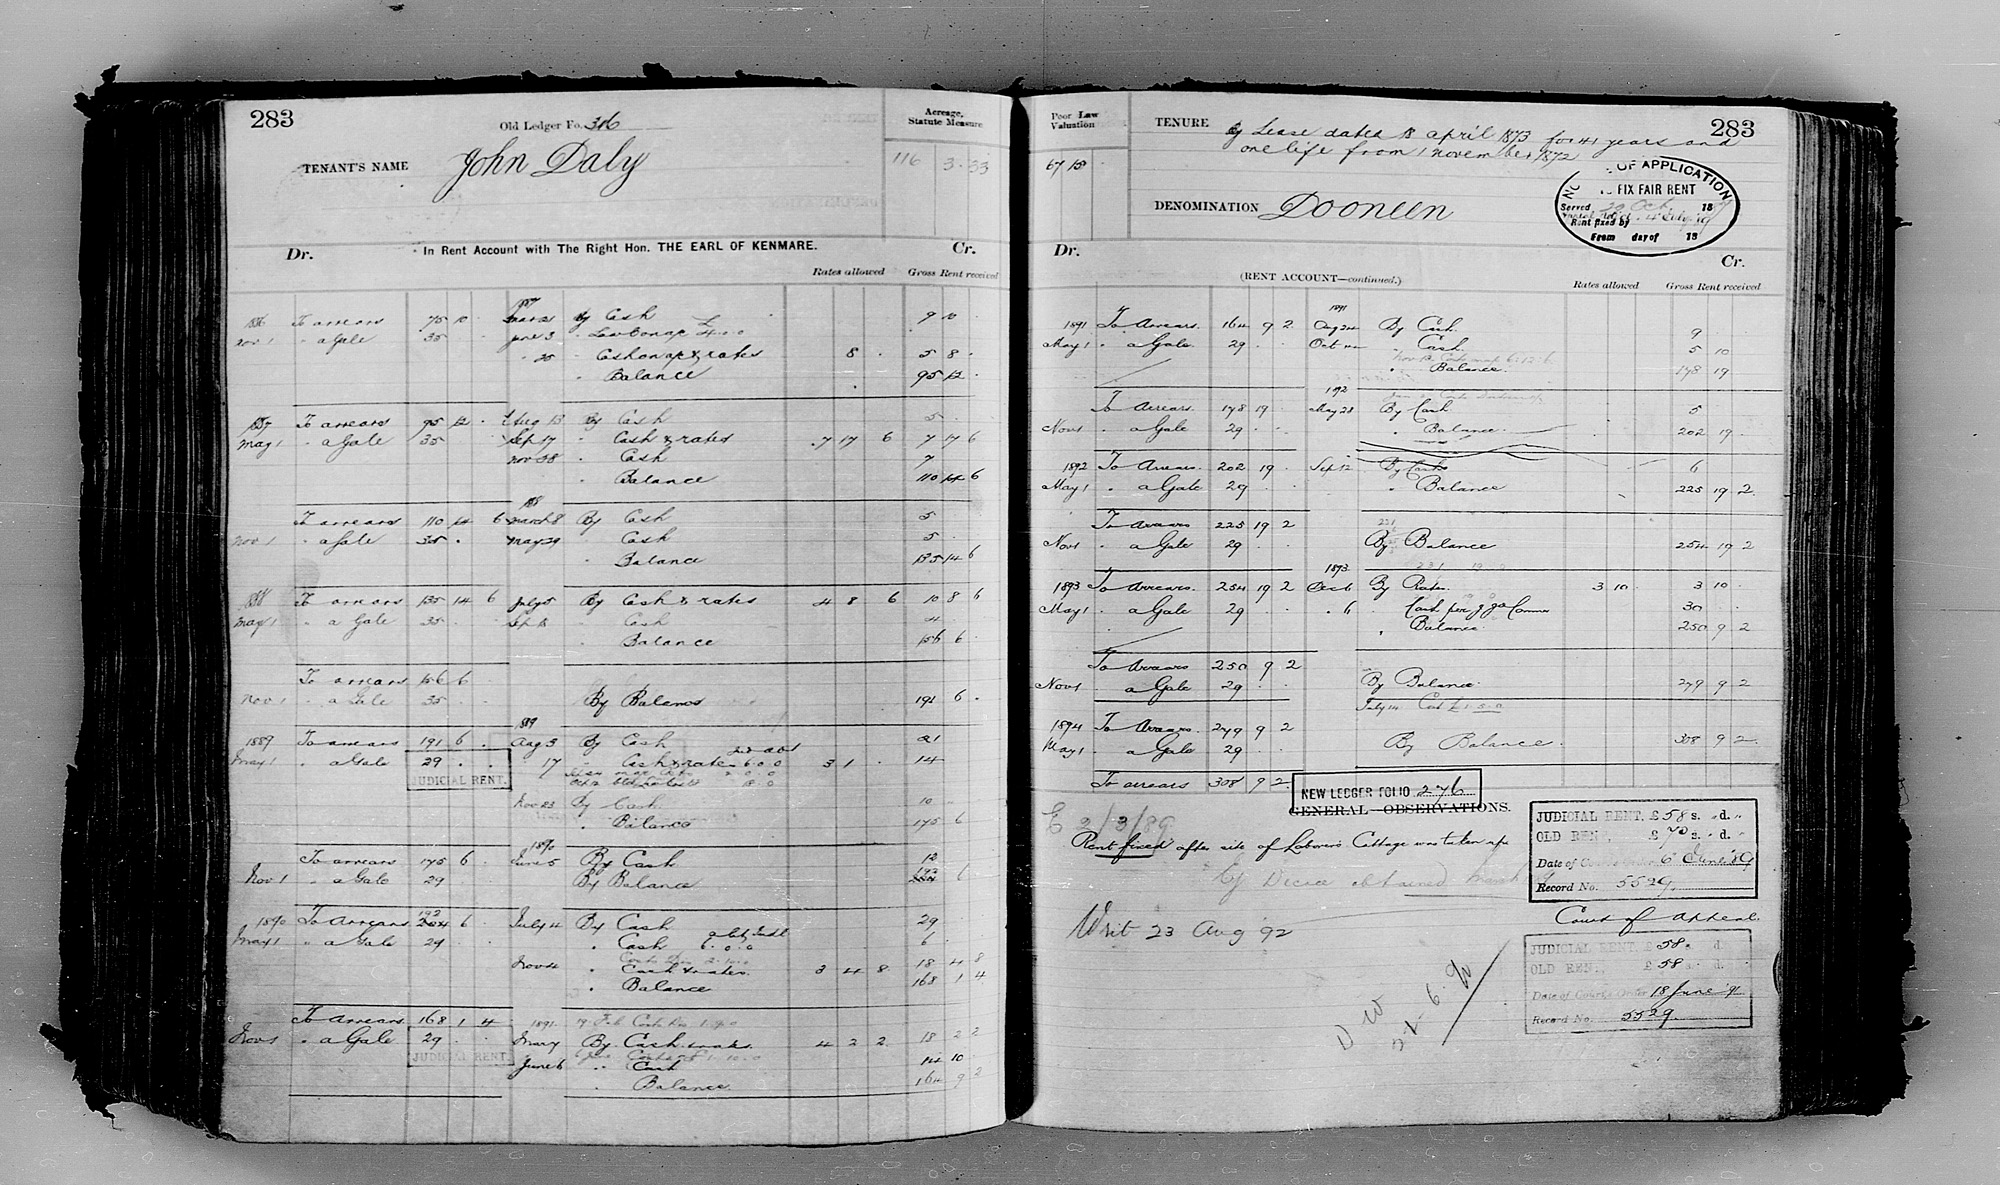 283
Old Ledger Fo. 316
Acreage, Statute Measure
TENANT'S NAME John Daly
116 3 . 33
Dr. In Rent Account with The Right Hon. THE EARL OF KENMARE. Cr.
Rates allowed Gross Rent received
1887
1886 To arrears 75 10 . March 21 By Cash 9 10 .
Nov 1 " a Gale 35 . June 3 "
" 25 " Cash on ac & rates 8 . 5 8 .
" Balance 95 12 .
1887 To arrears 95 12 . Aug 13 By Cash 5 .
May 1 " a Gale 35 . Sep 17 " Cash & rates 7 17 6 7 17 6
Nov 28 " Cash 7
" Balance 110 14 6
1888
To arrears 110 14 6 March 8 By Cash 5 .
Nov 1 " a Gale 35 . May 29 " Cash 5 .
" Balance 135 14 6
1888 To arrears 135 14 6 July 5 By Cash & rates 4 8 6 10 8 6
May 1 " a Gale 35 . . Sep 18 " Cash 4 .
" Balance 156 6 .
To arrears 156 6
Nov 1 " a Gale 35 . . By Balance 191 6 .
1889
1889 To arrears 191 6 . Aug 3 By Cash 21
May 1 " a Gale 29 . . 17 " Cash & rates 6.0.0 3 1 . 14
JUDICIAL RENT.
Nov 23 By Cash 10
" Balance 175 6
1890
To arrears 175 6 . June 5 By Cash 12
Nov 1 " a Gale 29 By Balance 192 6
1890 To Arrears 192 6 . July 4 By Cash 29
May 1 " a Gale 29 " Cash 6.0.0 6 .
Nov 4 " Cash & rates 3 4 8 18 4 8
" Balance 168 1 4
To Arrears 168 1 4 1891
Nov 1 " a Gale 29 . . May By Cash & rates 4 2 2 18 2 2
JUDICIAL RENT.
June 6 " Cash 14 10
" Balance 164 9 2
Poor Law Valuation
TENURE By Lease dated 18 April 1873 for 41 years and
one life from 1 November 1872
283
67 15 .
DENOMINATION Dooneen
OF APPLICATION
FIX FAIR RENT
Served 20 Oct 18
Rent fixed by
From day of 18
Dr. Cr.
(RENT ACCOUNT—continued.)
Rates allowed Gross Rent received
1891
1891 To Arrears 164 9 2 Aug 24 By Cash 9 . .
May 1 " a Gale 29 . . Oct " Cash 5 10
" Balance 178 19
1892
To Arrears 178 19 . May 28 By Cash 5
Nov 1 " a Gale 29 . . " Balance 202 19 .
1892 To Arrears 202 19 . Sep 12 By Cash 6
May 1 " a Gale 29 . . " Balance 225 19 2
To Arrears 225 19 2
Nov 1 " a Gale 29 . . By Balance 254 19 2
1893
1893 To Arrears 254 19 2 Oct 6 By Rates 3 10 . 3 10 .
May 1 " a Gale 29 . . " 6 Cash per 30 .
" Balance 250 9 2
To Arrears 250 9 2
Nov 1 " a Gale 29 . . By Balance 279 9 2
July 14 Cost £1.5.0
1894 To Arrears 279 9 2
May 1 " a Gale 29 . . By Balance 308 9 2
To arrears 308 9 2
NEW LEDGER FOLIO 276
GENERAL OBSERVATIONS.
E 2/3/89
Rent fixed after site of Laborers Cottage was taken up
Ej Decree obtained
Writ 23 Aug 92
JUDICIAL RENT, £58 s. " d. "
OLD REN , £70 s. " d. "
Date of Court Order 6 June '89
Record No. 5529.
Court of Appeal.
JUDICIAL RENT, £58 s. d.
OLD REN , £58 s. d.
Date of Court Order 18 June 9
Record No. 5529.